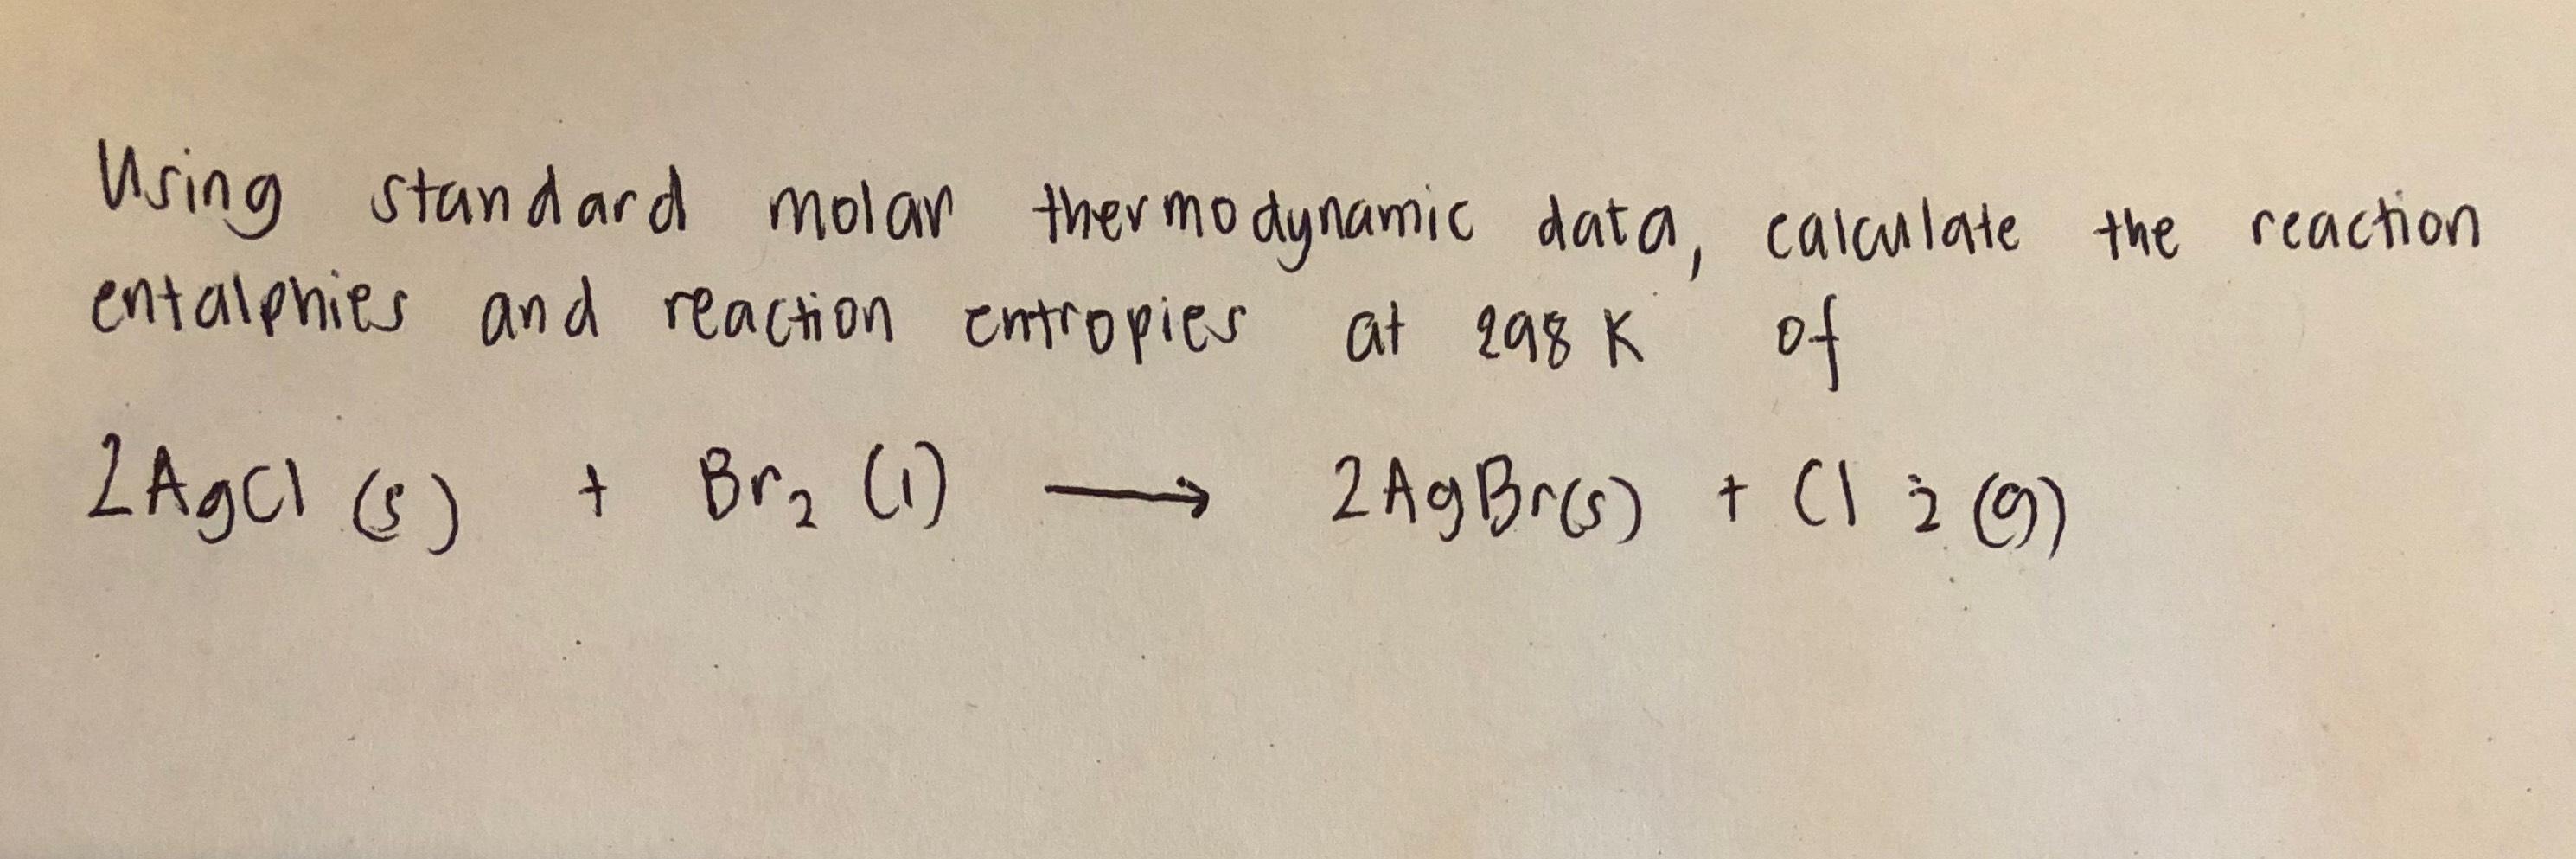 Using standard molar thermodynamic data, calculate the reaction
entalphies and reaction entropies at 298 K of
2AgCl (s) + Br₂ (l) ⟶ 2AgBr(s) + Cl ₂ (g)